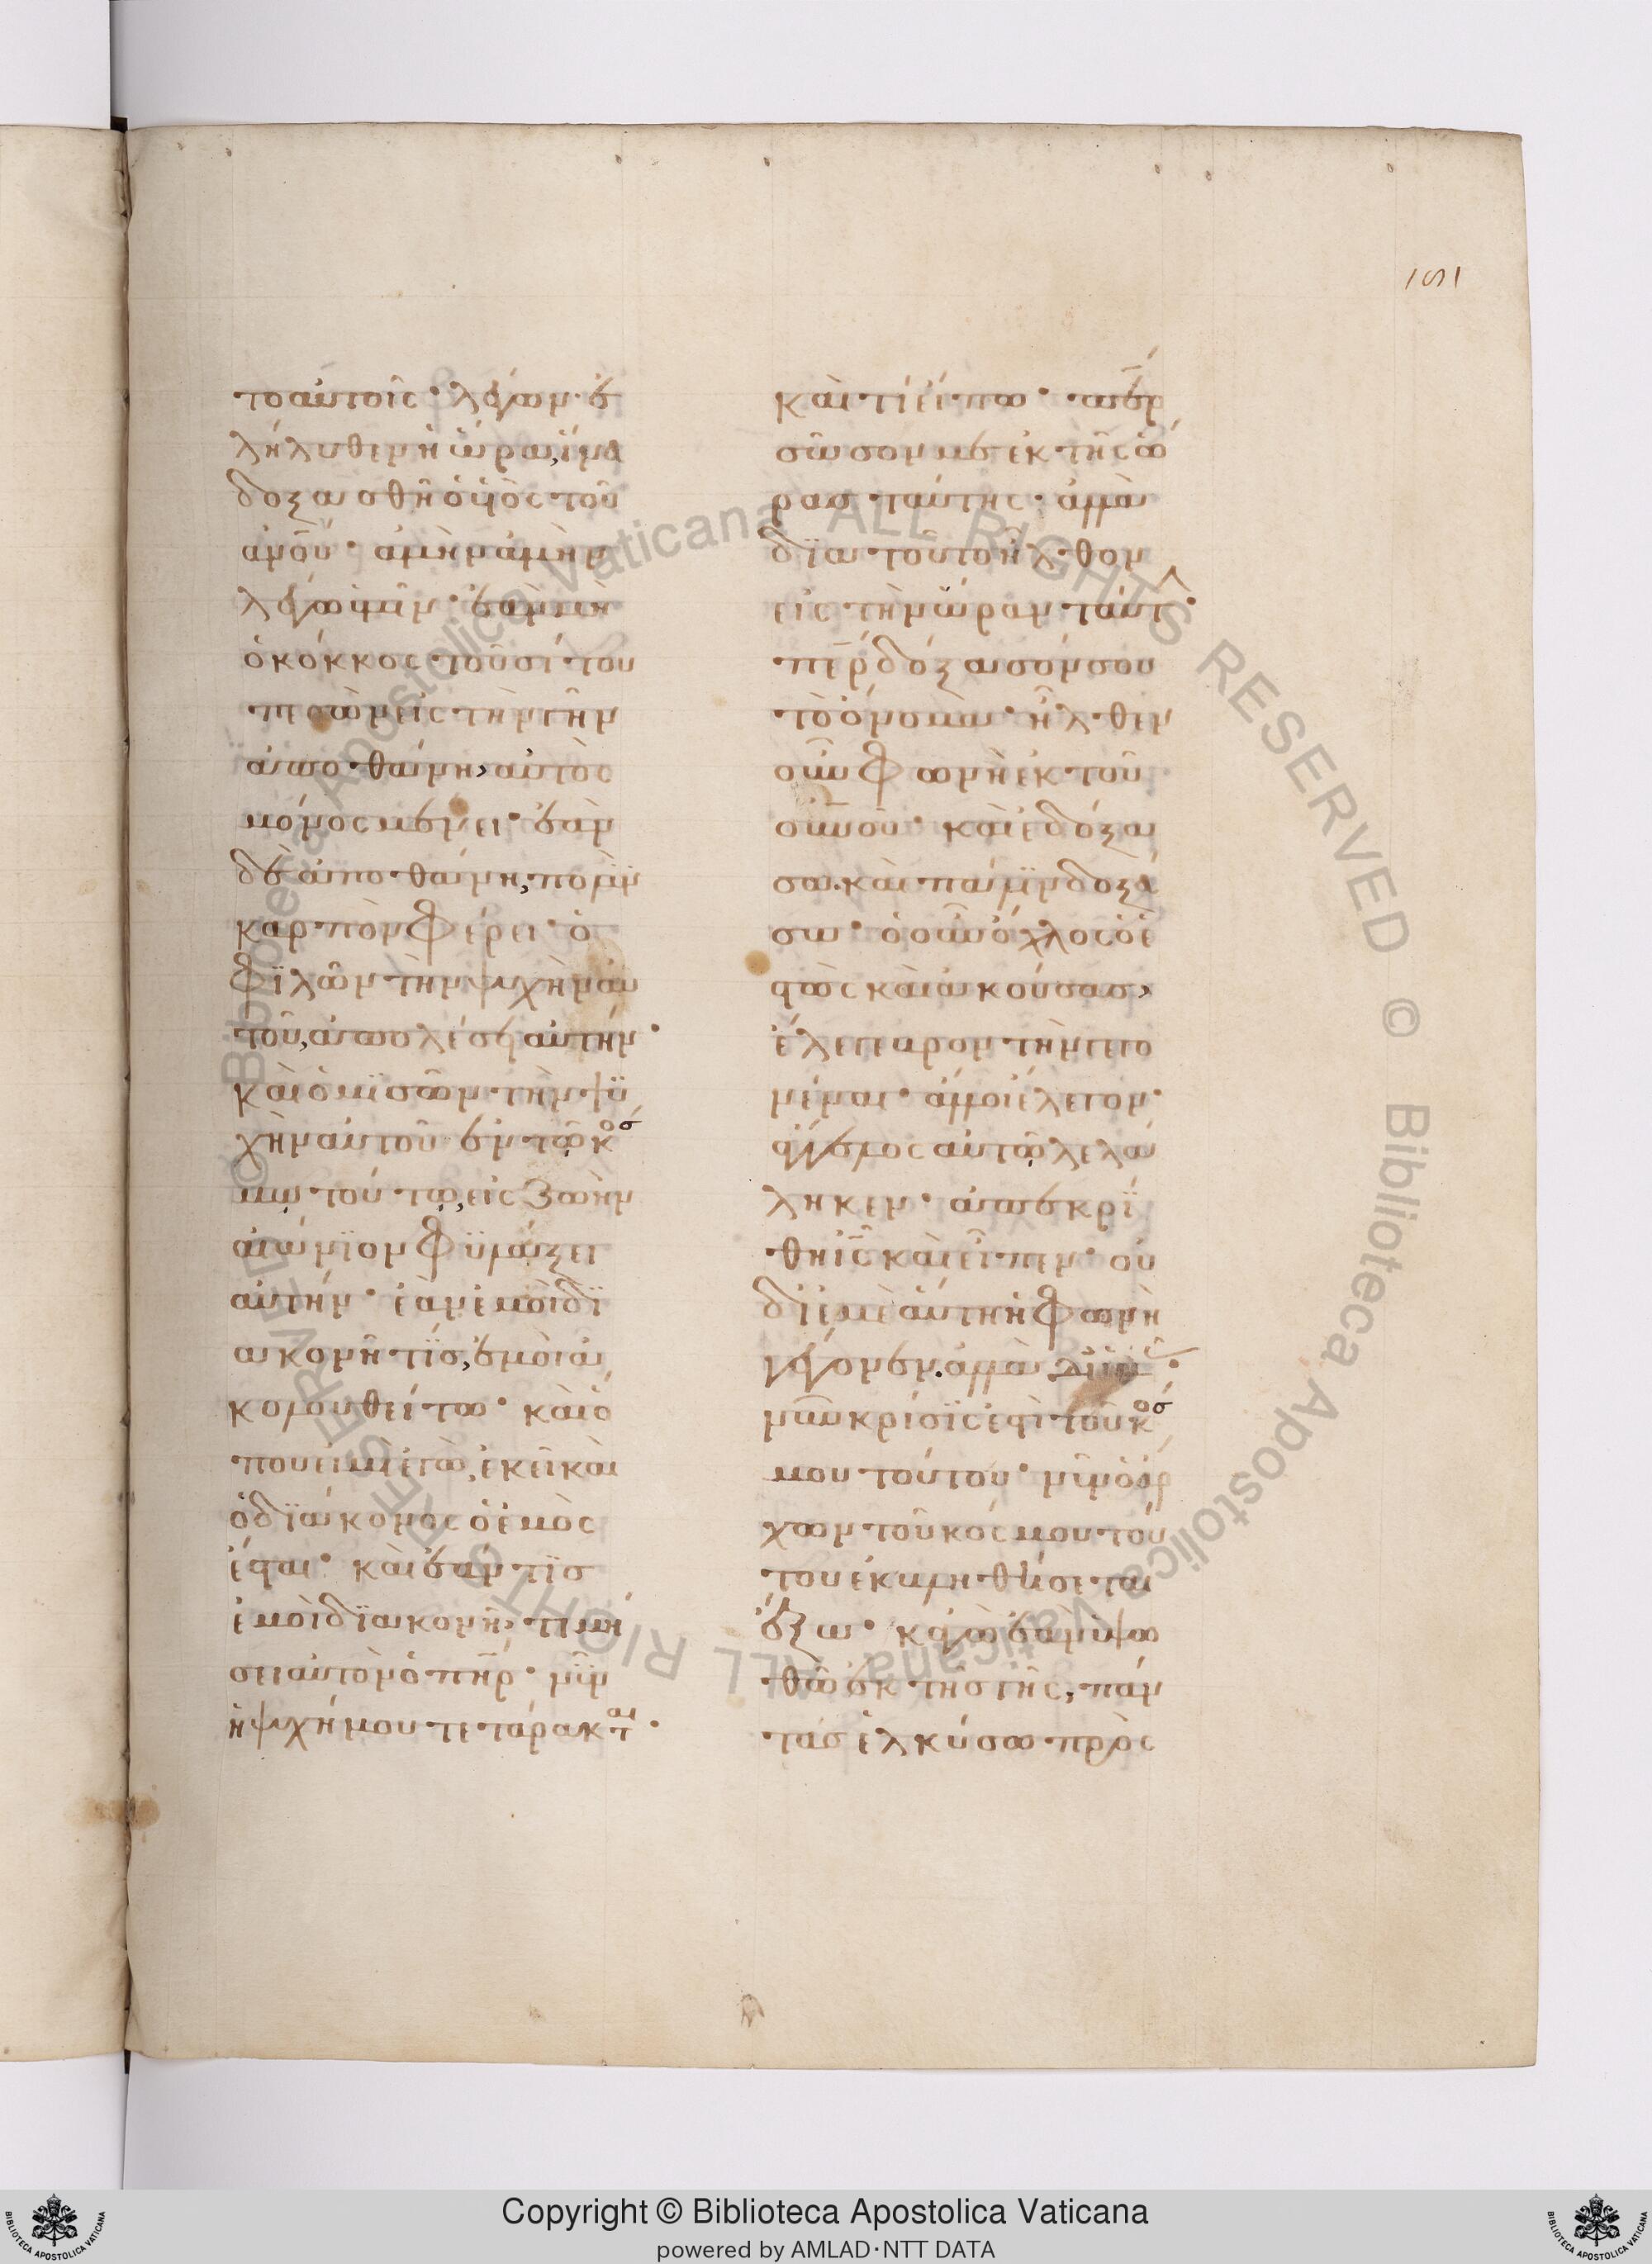 151
το αὐτοῖς· λέγων· ἐ
λήλυθεν ἡ ὥρα, ἵνα
δοξασθῆ ὁ υἱὸς τοῦ
ἀνο̅υ· ἀμὴν ἀμὴν
λέγω ὑμῖν· ἐὰν μὴ
ὁ κόκκος τοῦ σίτου
πεσὼν εἰς τὴν γῆν
ἀποθάνη, αὐτὸς
μόνος μένει· ἐὰν
δὲ ἀποθάνη, πολὺν
καρπὸν φέρει· ὁ
φϊλῶν τὴν ψυχὴν αὐ
τοῦ, ἀπολέσει αὐτήν·
καὶ ὁ μϊσῶν τὴν ψυ
χὴν αὐτοῦ ἐν τῷ κοσ
μῳ τούτῳ, εἰς ζωὴν
αἰώνϊον φϋλάξει
αὐτήν· ἐὰν ἐμοὶ δϊ
ακονῆ τὶς, ἐμοὶ ἀ
κολουθείτω· καὶ ὅ
που εἰμὶ ἐγὼ, ἐκεῖ καὶ
ὁ δϊάκονος ὁ ἐμὸς
ἔσται· καὶ ἐάν τϊς
ἐμοὶ δϊακονῆ, τιμή
σει αὐτὸν ὁ πη̅ρ· νῦν
ἡ ψυχή μου τετάρακται·
καὶ τί εἴπω· πε̅ρ
σῶσον με ἐκ τῆς ὥ
ρας ταύτης· ἀλλὰ
δϊὰ τοῦτο ἦλθον
εἰς τὴν ὥραν ταύτ·
πε̅ρ δόξασόν σου
τὸ ὄνομα· ἦλθεν
οὖν φωνὴ ἐκ τοῦ
οὐ̅νοῦ· καὶ ἐδόξα
σα· καὶ πάλϊν δοξά
σω· ὁ οὖν ὄχλος ὁ ἑ
στὼς καὶ ἀκούσας,
ἔλεγεν βροντὴν γεγο
νέναι· ἄλλοι ἔλεγον·
ἄγγελος αὐτῷ λελά
ληκεν· ἀπεκρί
θη ι̅ς καὶ εἶπεν· οὐ
δι ἐμὲ αὕτη ἡ φωνὴ
γέγονεν· ἀλλὰ δι ὑμᾶς·
νῦν κρίσϊς ἐστὶ τοῦ κοσ
μου τούτου· νῦν ὁ ἄρ
χων τοῦ κόσμου τού
του ἐκβληθήσεται
ἔξω· κἀγὼ ἐὰν ὑψω
θῶ ἐκ τῆς γῆς, πάν
τας ἑλκύσω πρὸς
© Biblioteca Apostolica Vaticana ALL RIGHTS RESERVED © Biblioteca Apostolica Vaticana ALL RIGHTS RESERVED
Copyright © Biblioteca Apostolica Vaticana
powered by AMLAD·NTT DATA
BIBLIOTECA APOSTOLICA VATICANA
BIBLIOTECA APOSTOLICA VATICANA